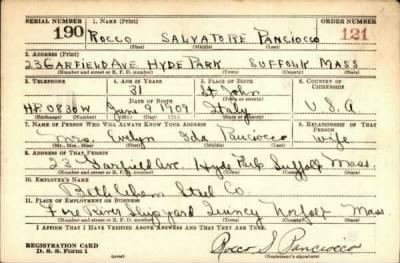 SERIAL NUMBER 1. NAME (Print) ORDER NUMBER
190 ROCCO SALVATORE PANCIOCCO 121
(First) (Middle) (Last)
2. ADDRESS (Print)
23 GARFIELD AVE HYDE PARK SUFFOLK MASS
(Number and street or R. F. D. number) (Town) (County) (State)
3. TELEPHONE 4. AGE IN YEARS 5. PLACE OF BIRTH 6. COUNTRY OF CITIZENSHIP
31 St. John
DATE OF BIRTH
HP. 0830W June 9 1909 Italy U.S.A
(Exchange) (Number) (Mo.) (Day) (Yr.) (State or country)
7. NAME OF PERSON WHO WILL ALWAYS KNOW YOUR ADDRESS 8. RELATIONSHIP OF THAT PERSON
Mrs. Evelyn Ida Panciocco wife
(Mr., Mrs., Miss) (First) (Middle) (Last)
9. ADDRESS OF THAT PERSON
23 Garfield Ave. Hyde Park Suffolk Mass.
(Number and street or R. F. D. number) (Town) (County) (State)
10. EMPLOYER'S NAME
Bethlehem Steel Co
11. PLACE OF EMPLOYMENT OR BUSINESS
Fore River Shipyard Quincy Norfolk Mass.
(Number and street or R. F. D. number) (Town) (County) (State)
I AFFIRM THAT I HAVE VERIFIED ABOVE ANSWERS AND THAT THEY ARE TRUE.
REGISTRATION CARD
D. S. S. Form 1
Rocco S. Panciocco
(Registrant's signature)